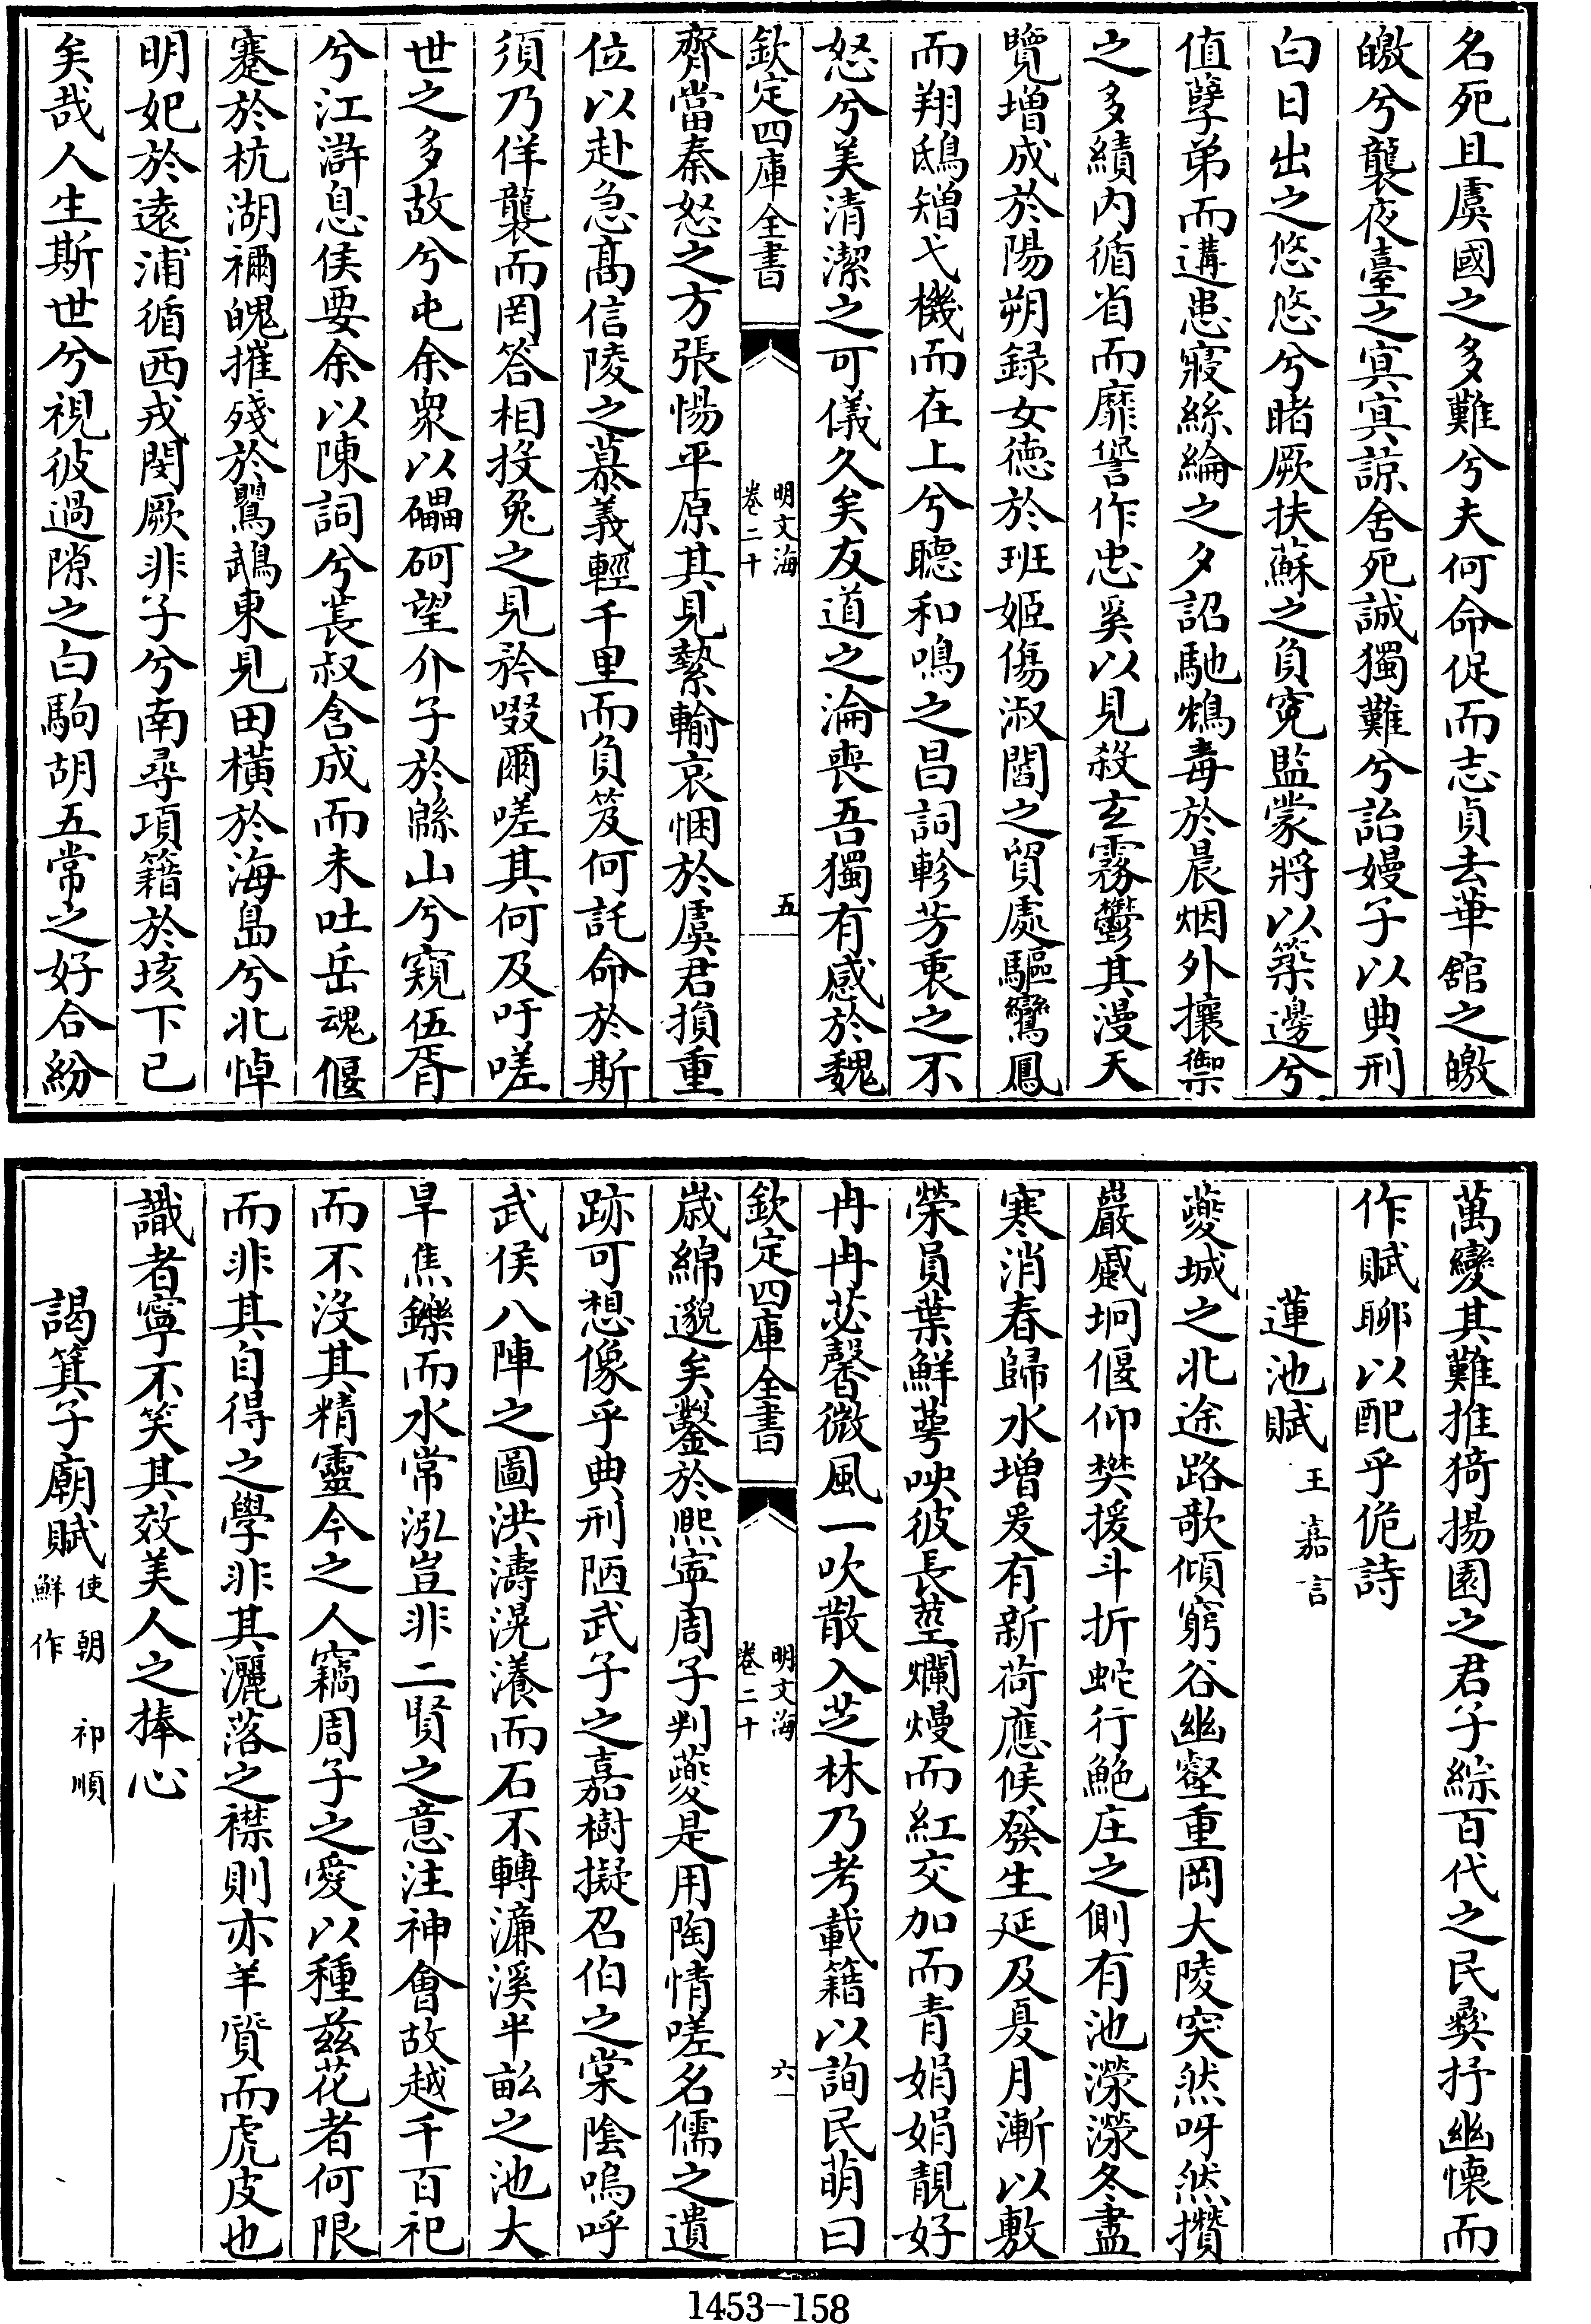 名死且虞國之多難兮夫何命促而志貞去華舘之皦
皦兮襲夜臺之冥冥諒舍死誠獨難兮詒嫚子以典刑
白日出之悠悠兮睹厥扶蘇之負寃監蒙將以築邊兮
值孽弟而遘患寢絲綸之夕詔馳鴆毒於晨烟外攘禦
之多績内循省而靡諐作忠奚以見殺玄霧鬱其漫天
覽增成於陽朔録女德於班姬傷淑閟之貿處驅鸞鳳
而翔鴟矰弋機而在上兮聽和鳴之昌詞軫芳衷之不
怒兮美清潔之可儀久矣友道之淪喪吾獨有感於魏
欽定四庫全書 明文海 卷二十 五
齊當秦怒之方張愓平原其見縶輸哀悃於虞君損重
位以赴急高信陵之慕義輕千里而負笈何託命於斯
須乃佯襲而罔答相投兔之見矜啜爾嗟其何及吁嗟
世之多故兮屯余衆以礧砢望介子於緜山兮窺伍胥
兮江滸息侯要余以陳詞兮萇叔含成而未吐岳魂偃
蹇於杭湖禰魄摧殘於鸚鵡東見田橫於海島兮北悼
明妃於遠浦循西戎閔厥非子兮南尋項籍於垓下已
矣哉人生斯世兮視彼過隙之白駒胡五常之好合紛
萬變其難推猗揚園之君子綜百代之民彜抒幽懷而
作賦聊以配乎佹詩
蓮池賦 王嘉言
夔城之北途路欹傾窮谷幽壑重岡大陵突然呀然攢
巖巇坰偃仰樊援斗折蛇行鮑庄之側有池濴濴冬盡
寒消春歸水增爰有新荷應候發生延及夏月漸以敷
榮員葉鮮萼映彼長莖爛熳而紅交加而青娟娟靚好
冉冉苾馨微風一吹散入芝林乃考載籍以詢民萌曰
欽定四庫全書 明文海 卷二十 六
歲綿邈矣鑿於熙寧周子判夔是用陶情嗟名儒之遺
跡可想像乎典刑陋武子之嘉樹擬召伯之棠陰嗚呼
武侯八陣之圖洪濤滉瀁而石不轉濂溪半畝之池大
旱焦鑠而水常泓豈非二賢之意注神會故越千百祀
而不沒其精靈今之人竊周子之愛以種兹花者何限
而非其自得之學非其灑落之襟則亦羊質而虎皮也
識者寧不笑其效美人之捧心
謁箕子廟賦 使朝鮮作 祁順
1453-158